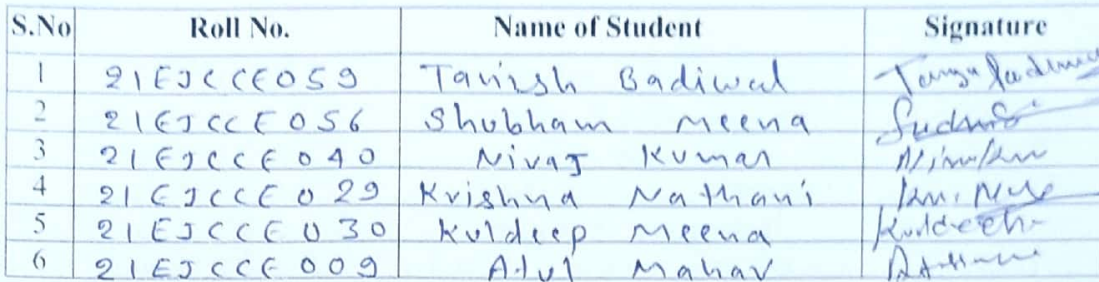 S.No Roll No. Name of Student Signature
1 21EJCCE059 Tanish Badiwal
2 21EJCCE056 Shubham Meena
3 21EJCCE040 Niraj Kumar
4 21EJCCE029 Krishna Nathani
5 21EJCCE030 Kuldeep Meena Kuldeep
6 21EJCCE009 Atul Mahav